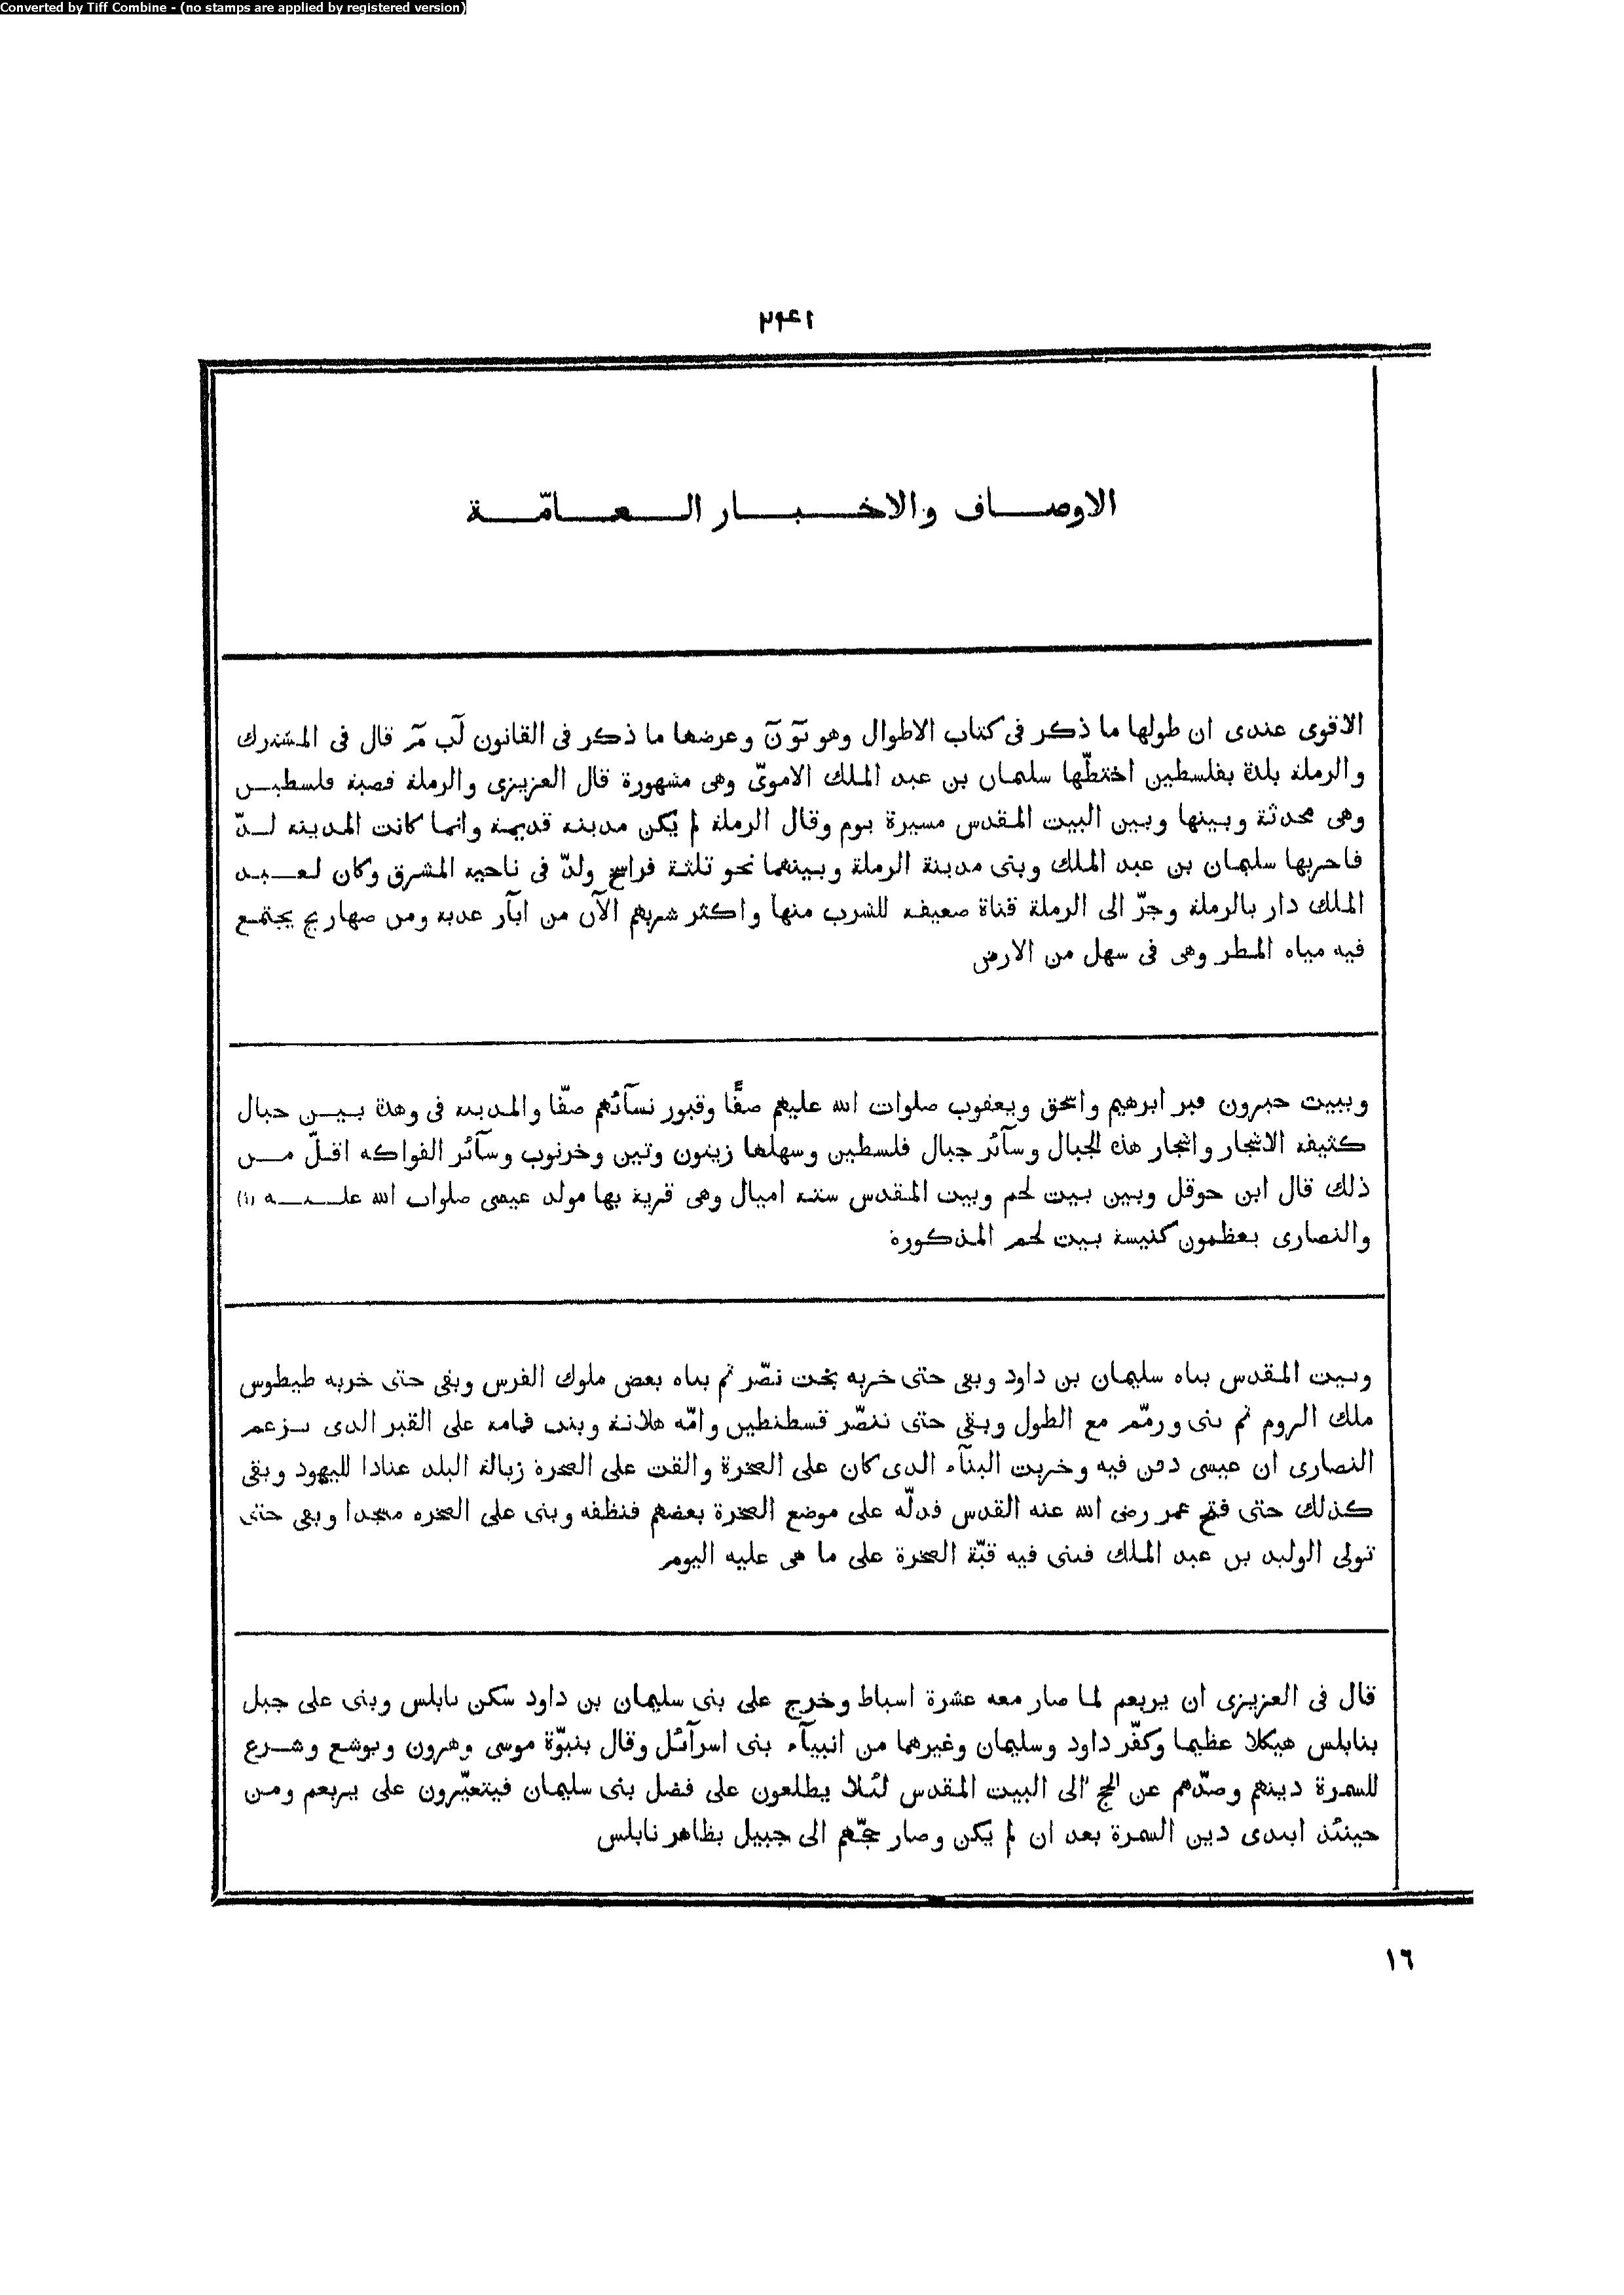 Converted by Tiff Combine - (no stamps are applied by registered version)
٢٤١
الاوصاف والاخبار العامّة
الاقوى عندى ان طولها ما ذكر فى كتاب الاطوال وهو نَو نَ وعرضها ما ذكر فى القانون لَب مَ قال فى المشترك
والرملة بلدة بفلسطين اختطّها سليمان بن عبد الملك الاموىّ وهى مشهورة قال العزيزى والرملة قصبة فلسطين
وهى محدثة وبينها وبين البيت المقدس مسيرة يوم وقال الرملة لم يكن مدينة قديمة وانما كانت المدينة لدّ
فاخربها سليمان بن عبد الملك وبنى مدينة الرملة وبينهما نحو ثلثة فراسخ ولدّ فى ناحية المشرق وكان لعبد
الملك دار بالرملة وجرّ الى الرملة قناة ضعيفة للشرب منها واكثر شربهم الآن من ابآر عذبة ومن صهاريج يجتمع
فيه مياه المطر وهى فى سهل من الارض
وببيت حبرون قبر ابرهيم واسحق ويعقوب صلوات الله عليهم صفًّا وقبور نسآئهم صفّا والمدينة فى وهدة بين جبال
كثيفة الاشجار واشجار هذه الجبال وسآئر جبال فلسطين وسهلها زيتون وتين وخرنوب وسآئر الفواكه اقلّ من
ذلك قال ابن حوقل وبين بيت لحم وبيت المقدس ستة اميال وهى قرية بها مولد عيسى صلوات الله عليه (١)
والنصارى يعظمون كنيسة بيت لحم المذكورة
وبيت المقدس بناه سليمان بن داود وبقى حتى خربه بخت نصّر ثم بناه بعض ملوك الفرس وبقى حتى خربه طيطوس
ملك الروم ثم بنى ورمّم مع الطول وبقى حتى تنصّر قسطنطين وامّه هلانة وبنت قمامة على القبر الذى يزعم
النصارى ان عيسى دفن فيه وخربت البنآء الذى كان على الصخرة والقت على الصخرة زبالة البلد عنادا لليهود وبقى
كذلك حتى فتح عمر رضى الله عنه القدس فدلّه على موضع الصخرة بعضهم فنظفه وبنى على الصخرة مسجدا وبقى حتى
تولى الوليد بن عبد الملك فبنى فيه قبّة الصخرة على ما هى عليه اليوم
قال فى العزيزى ان يربعم لما صار معه عشرة اسباط وخرج على بنى سليمان بن داود سكن نابلس وبنى على جبل
بنابلس هيكلا عظيما وكفّر داود وسليمان وغيرهما من انبيآء بنى اسرآئل وقال بنبوّة موسى وهرون ويوشع وشرع
للسمرة دينهم وصدّهم عن الحج الى البيت المقدس لئلا يطلعون على فضل بنى سليمان فيتغيّرون على يربعم ومن
حينئذ ابتدى دين السمرة بعد ان لم يكن وصار حجّهم الى جبيل بظاهر نابلس
١٦